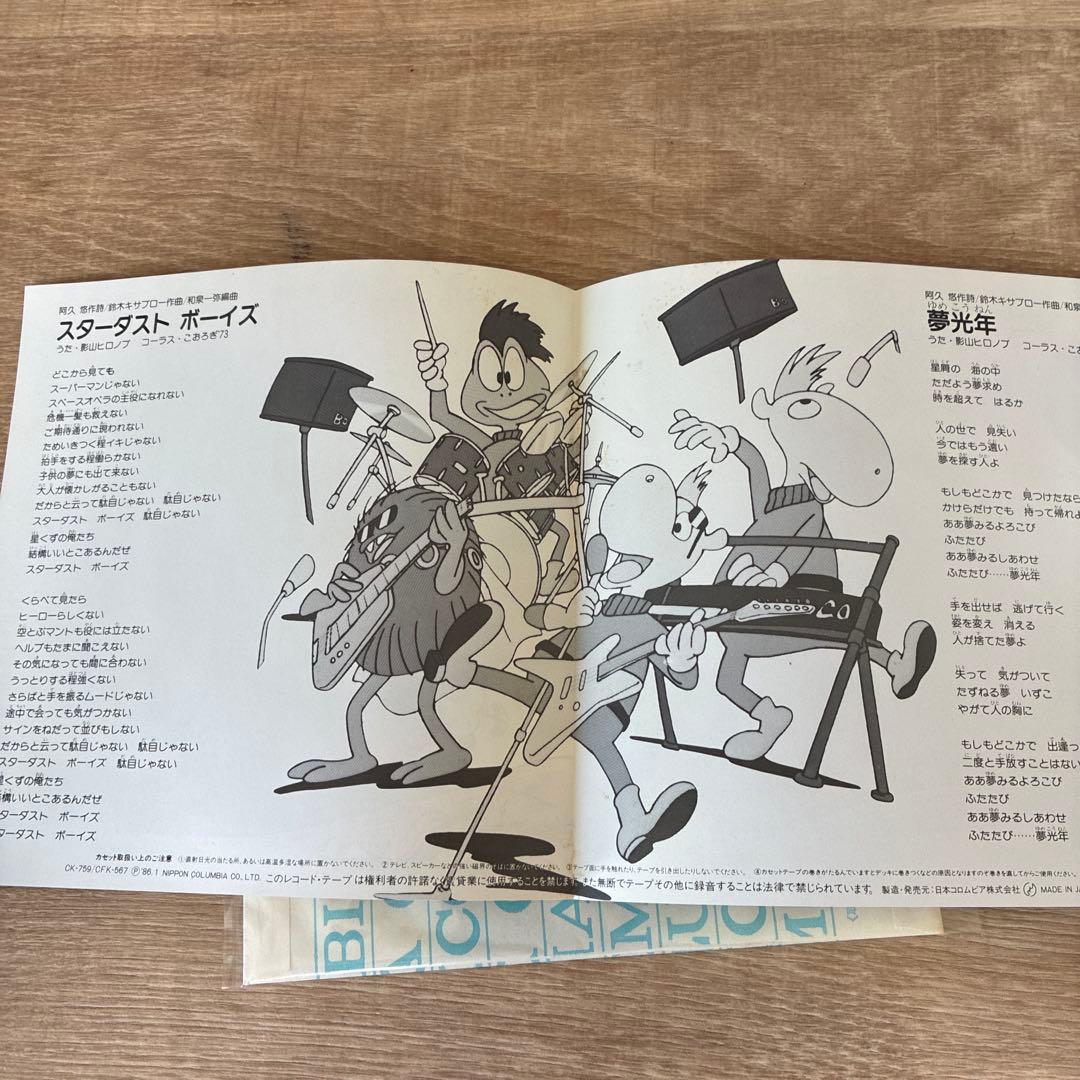 阿久 悠作詩/鈴木キサブロー作曲/和泉一弥編曲
スターダスト ボーイズ
うた・影山ヒロノブ コーラス・こおろぎ'73
どこから見ても
スーパーマンじゃない
スペースオペラの主役になれない
危機一髪も救えない
ご期待通りに現われない
ためいきつく程イキじゃない
拍手をする程働らかない
子供の夢にも出て来ない
大人が懐かしがることもない
だからと云って駄目じゃない 駄目じゃない
スターダスト ボーイズ 駄目じゃない
星くずの俺たち
結構いいとこあるんだぜ
スターダスト ボーイズ
くらべて見たら
ヒーローらしくない
空とぶマントも役には立たない
ヘルプもたまに聞こえない
その気になっても間に合わない
うっとりする程強くない
さらばと手を振るムードじゃない
途中で会っても気がつかない
サインをねだって並びもしない
だからと云って駄目じゃない 駄目じゃない
スターダスト ボーイズ 駄目じゃない
星くずの俺たち
結構いいとこあるんだぜ
スターダスト ボーイズ
ターダスト ボーイズ
Bo
Bo
CO
阿久 悠作詩/鈴木キサブロー作曲/和泉
ゆめ こう ねん
夢光年
うた・影山ヒロノブ コーラス・こおろ
星屑の 海の中
ただよう夢求め
時を超えて はるか
人の世で 見失い
今ではもう遠い
夢を探す人よ
もしもどこかで 見つけたなら
かけらだけでも 持って帰れよ
ああ夢みるよろこび
ふたたび
ああ夢みるしあわせ
ふたたび……夢光年
手を出せば 逃げて行く
姿を変え 消える
人が捨てた夢よ
失って 気がついて
たずねる夢 いずこ
やがて人の胸に
もしもどこかで 出逢っ
二度と手放すことはない
ああ夢みるよろこび
ふたたび
ああ夢みるしあわせ
ふたたび……夢光年
カセット取扱い上のご注意 ①直射日光の当たる所、あるいは高温多湿な場所に置かないでください。 ②テレビ、スピーカーなどの強い磁界のそばに置かないでください。 ③テープ面に手を触れたり、テープを引き出したりしないでください。 ④カセットテープの巻きがたるんでいますとデッキに巻きつくなどの原因となりますのでたるみを直してからご使用ください。
CK-759/CFK-567 Ⓟ'86.1 NIPPON COLUMBIA CO., LTD. このレコード・テープは権利者の許諾なく賃貸業に使用することを禁じます。また無断でテープその他に録音することは法律で禁じられています。 製造・発売元:日本コロムビア株式会社 MADE IN JA